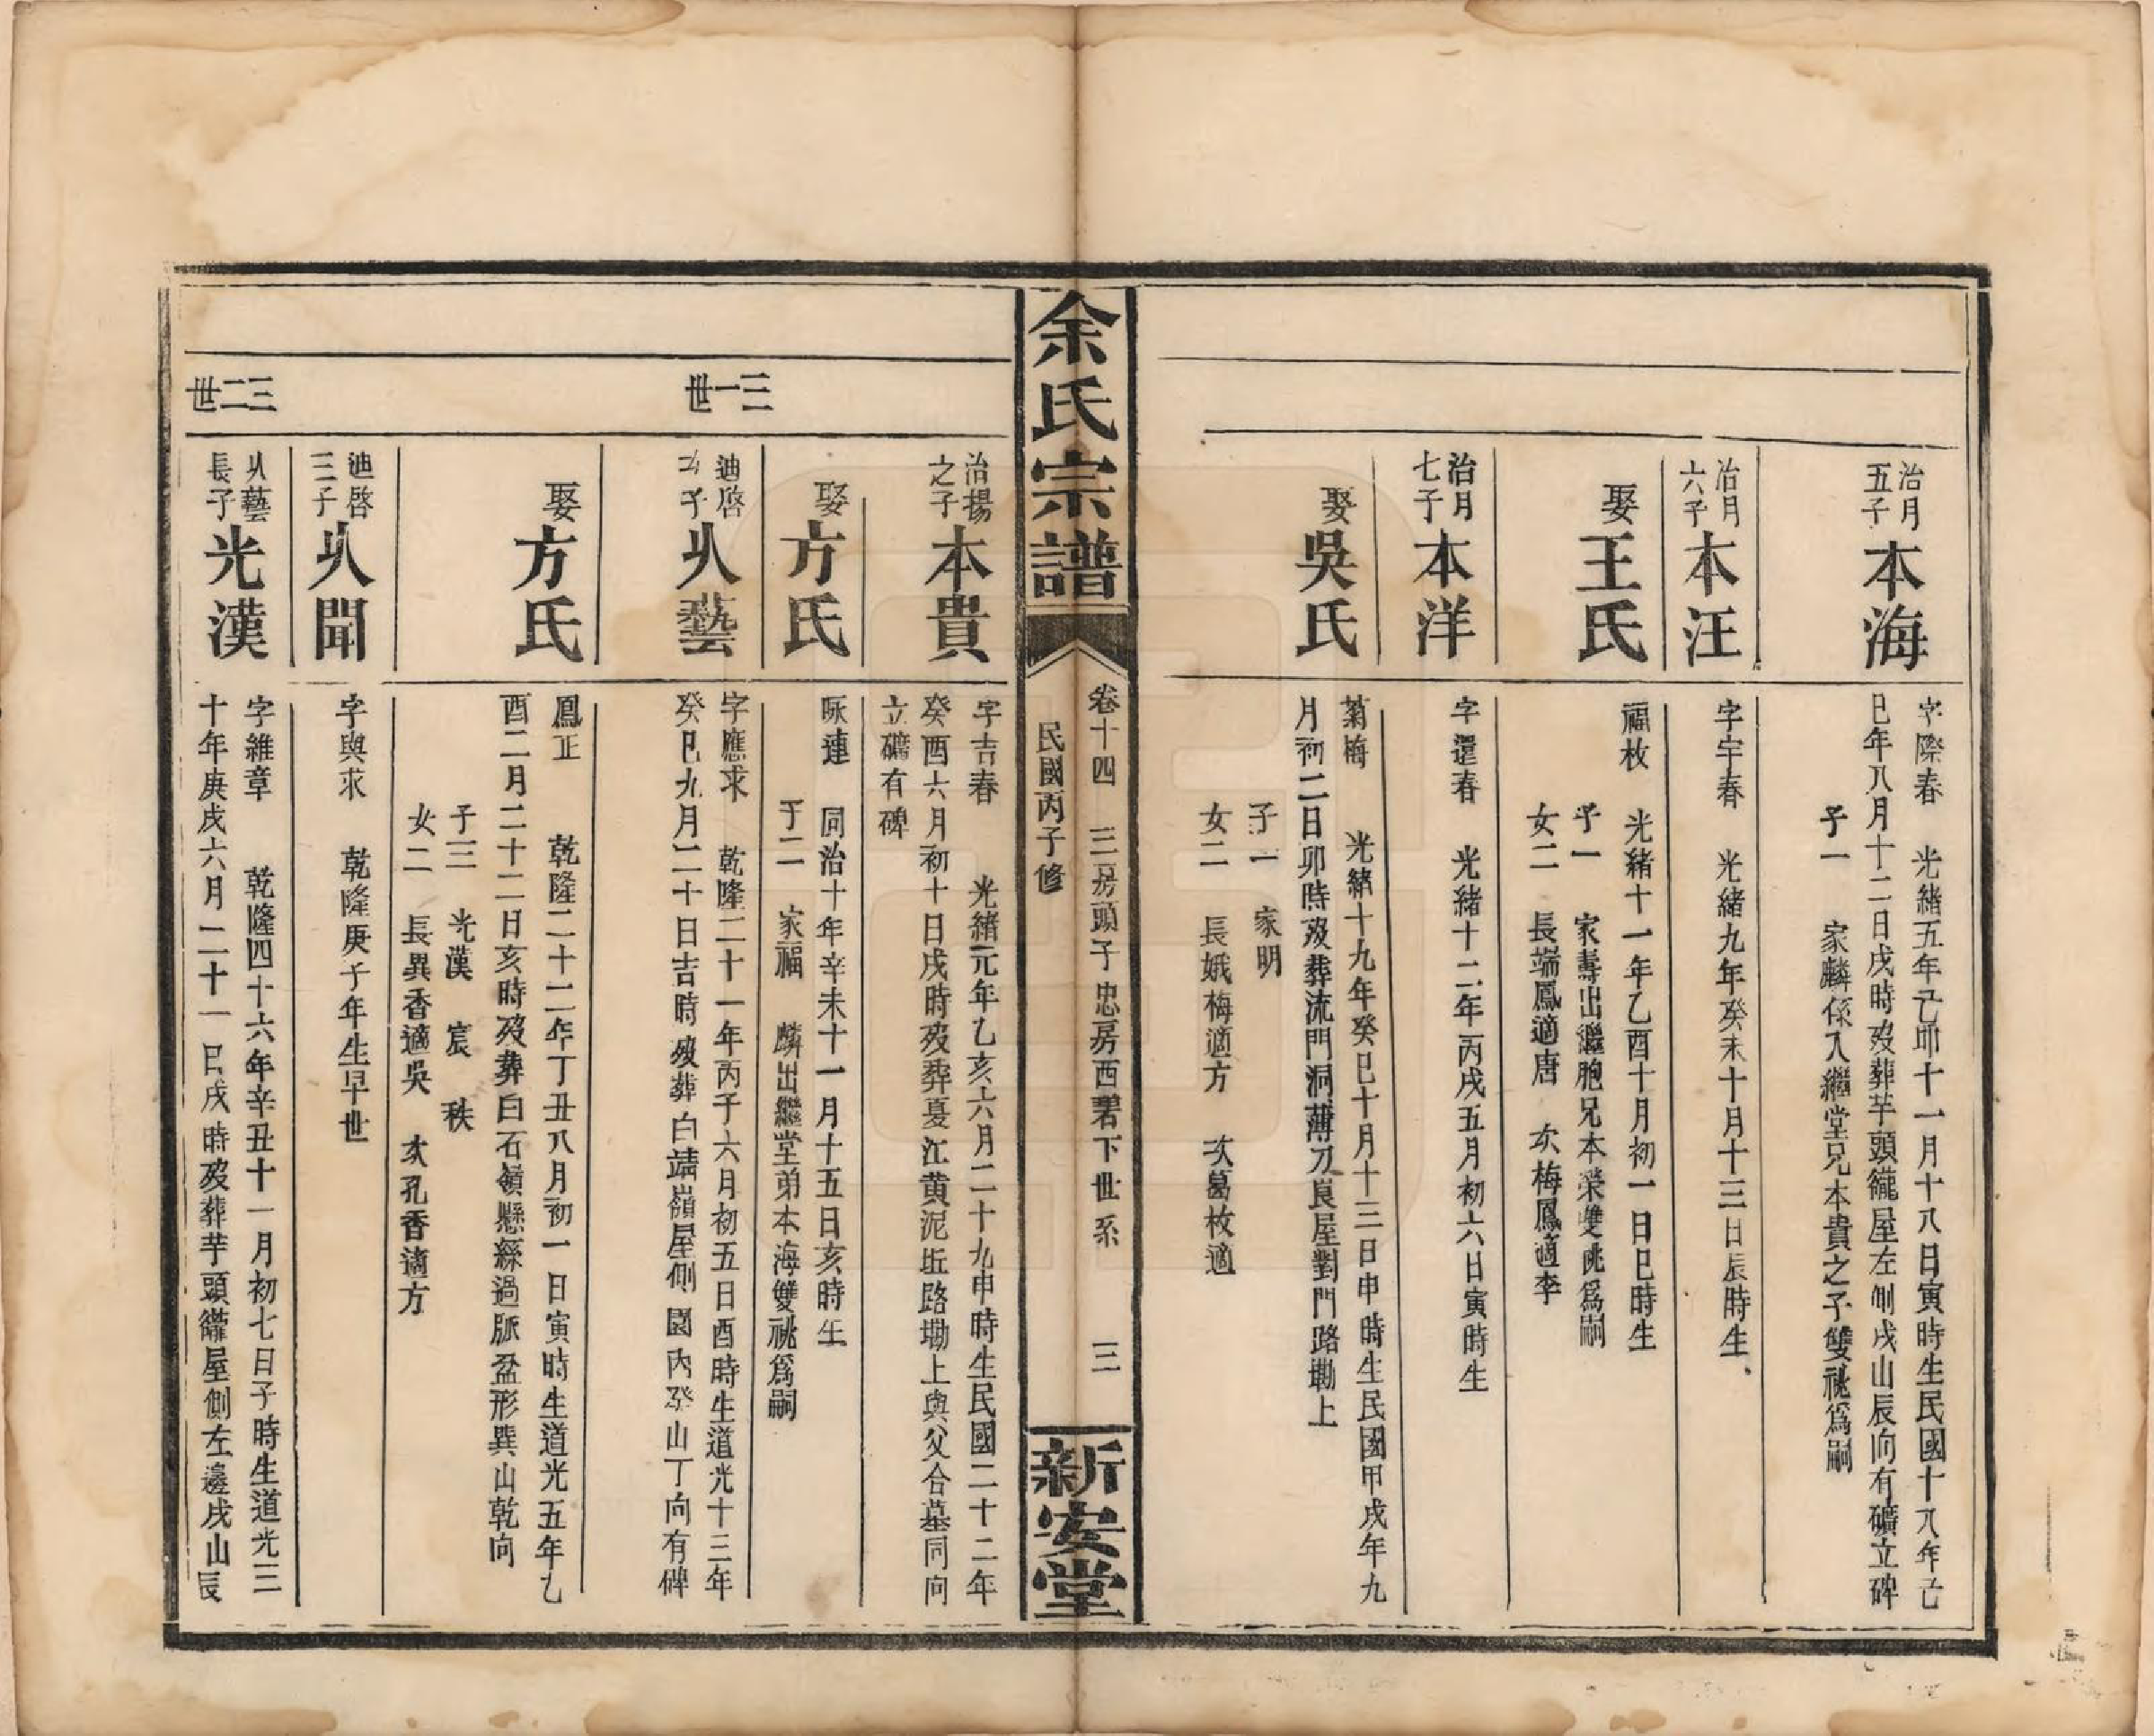 治月
五子
本海
字際春 光緒五年己卯十一月十八日寅時生民國十八年己
巳年八月十二日戌時歿葬芋頭𥵊屋左側戌山辰向有礦立碑
子一 家麟係入繼堂兄本貴之子雙祧爲嗣
治月
六子
本汪
字宇春 光緒九年癸未十月十三日辰時生
娶
王氏
福枚 光緒十一年乙酉十月初一日巳時生
子一 家壽出繼胞兄本榮雙祧爲嗣
女二 長端鳳適唐 次梅鳳適李
治月
七子
本洋
字還春 光緒十二年丙戌五月初六日寅時生
娶
吳氏
菊梅 光緒十九年癸巳十月十三日申時生民國甲戌年九
月初二日卯時歿葬流門洞薄刀崀屋對門路墈上
子一 家明
女二 長娥梅適方 次葛枚適
余氏宗譜
卷十四 三房頭子忠房西碧下世系 三
民國丙子修
新安堂
治揚
之子
本貴
字吉春 光緒元年乙亥六月二十九申時生民國二十二年
癸酉六月初十日戌時歿葬憂江黄泥坵路墈上與父合墓同向
立礦有碑
娶
方氏
咏連 同治十年辛未十一月十五日亥時生
子二 家福 麟出繼堂弟本海雙祧爲嗣
三一世
迪啓
次子
㕥藝
字應求 乾隆二十一年丙子六月初五日酉時生道光十三年
癸巳九月二十日吉時歿葬白靖嶺屋側園內癸山丁向有碑
娶
方氏
鳳正 乾隆二十二年丁丑八月初一日寅時生道光五年乙
酉二月二十二日亥時歿葬白石嶺懸繇過脈盆形巽山乾向
子三 光漢 宸 秩
女二 長異香適吳 次孔香適方
迪啓
三子
㕥聞
字與求 乾隆庚子年生早世
三二世
㕥藝
長子
光漢
字維章 乾隆四十六年辛丑十一月初七日子時生道光三
十年庚戌六月二十一日戌時歿葬芋頭𥵊屋側左邊戌山辰